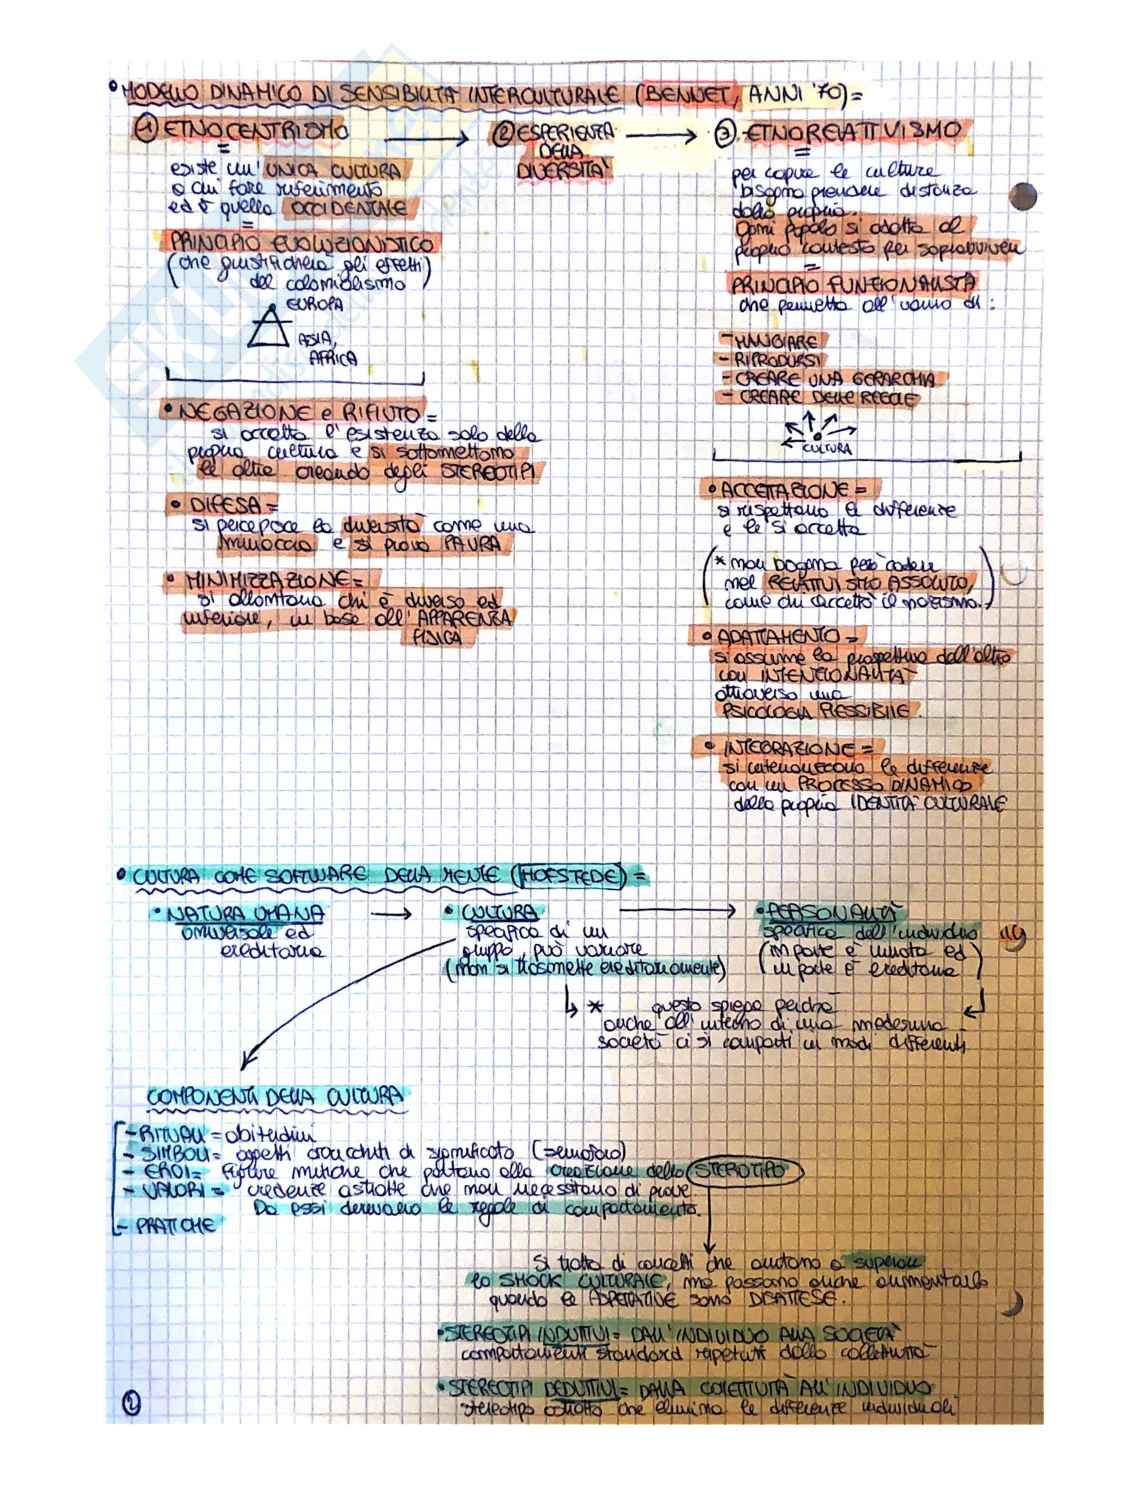 • MODELLO DINAMICO DI SENSIBILITÀ INTERCULTURALE (BENNET, ANNI '70) =
① ETNOCENTRISMO
=
esiste un' UNICA CULTURA
a cui fare riferimento
ed è quella OCCIDENTALE
=
PRINCIPIO EVOLUZIONISTICO
(che giustificherà gli effetti)
del colonialismo
EUROPA
ASIA,
AFRICA
• NEGAZIONE e RIFIUTO =
si accetta l'esistenza solo della
propria cultura e si sottomettono
le altre creando degli STEREOTIPI
• DIFESA =
si percepisce la diversità come una
minaccia e si prova PAURA
• MINIMIZZAZIONE =
si allontana chi è diverso ed
inferiore, in base all'APPARENZA
FISICA
② ESPERIENZA
DELLA
DIVERSITÀ
③ ETNORELATIVISMO
=
per capire le culture
bisogna prendere distanza
dalla propria.
Ogni popolo si adatta al
proprio contesto per sopravvivere
=
PRINCIPIO FUNZIONALISTA
che permette all'uomo di :
- MANGIARE
- RIPRODURSI
- CREARE UNA GERARCHIA
- CREARE DELLE REGOLE
CULTURA
• ACCETTAZIONE =
si rispettano le differenze
e le si accetta
(* non bisogna però cadere
nel RELATIVISMO ASSOLUTO,
come chi accetta il nazismo.)
• ADATTAMENTO =
si assume la prospettiva dell'altro
con INTENZIONALITÀ
attraverso una
PSICOLOGIA FLESSIBILE.
• INTEGRAZIONE =
si interiorizzano le differenze
con un PROCESSO DINAMICO
della propria IDENTITÀ CULTURALE
• CULTURA COME SOFTWARE DELLA MENTE (HOFSTEDE) =
• NATURA UMANA
universale ed
ereditaria
• CULTURA
specifica di un
gruppo, può variare
(non si trasmette ereditariamente)
• PERSONALITÀ
specifica dell'individuo
(in parte è innata ed)
in parte è ereditaria
* questo spiega perché
anche all'interno di una medesima
società ci si comporti in modi differenti
COMPONENTI DELLA CULTURA
- RITUALI = abitudini
- SIMBOLI = oggetti caricati di significato (=semaforo)
- EROI = figure mitiche che portano alla creazione dello STEROTIPO
- VALORI = credenze astratte che non necessitano di prove.
Da essi derivano le regole di comportamento.
- PRATICHE
Si tratta di concetti che aiutano a superare
lo SHOCK CULTURALE, ma possono anche aumentarlo
quando le ASPETTATIVE sono DISATTESE.
• STEREOTIPI INDUTTIVI = DALL'INDIVIDUO ALLA SOCIETÀ
comportamenti standard ripetuti dalla collettività
• STEREOTIPI DEDUTTIVI = DALLA COLETTIVITÀ ALL'INDIVIDUO
stereotipo astratto che elimina le differenze individuali
②